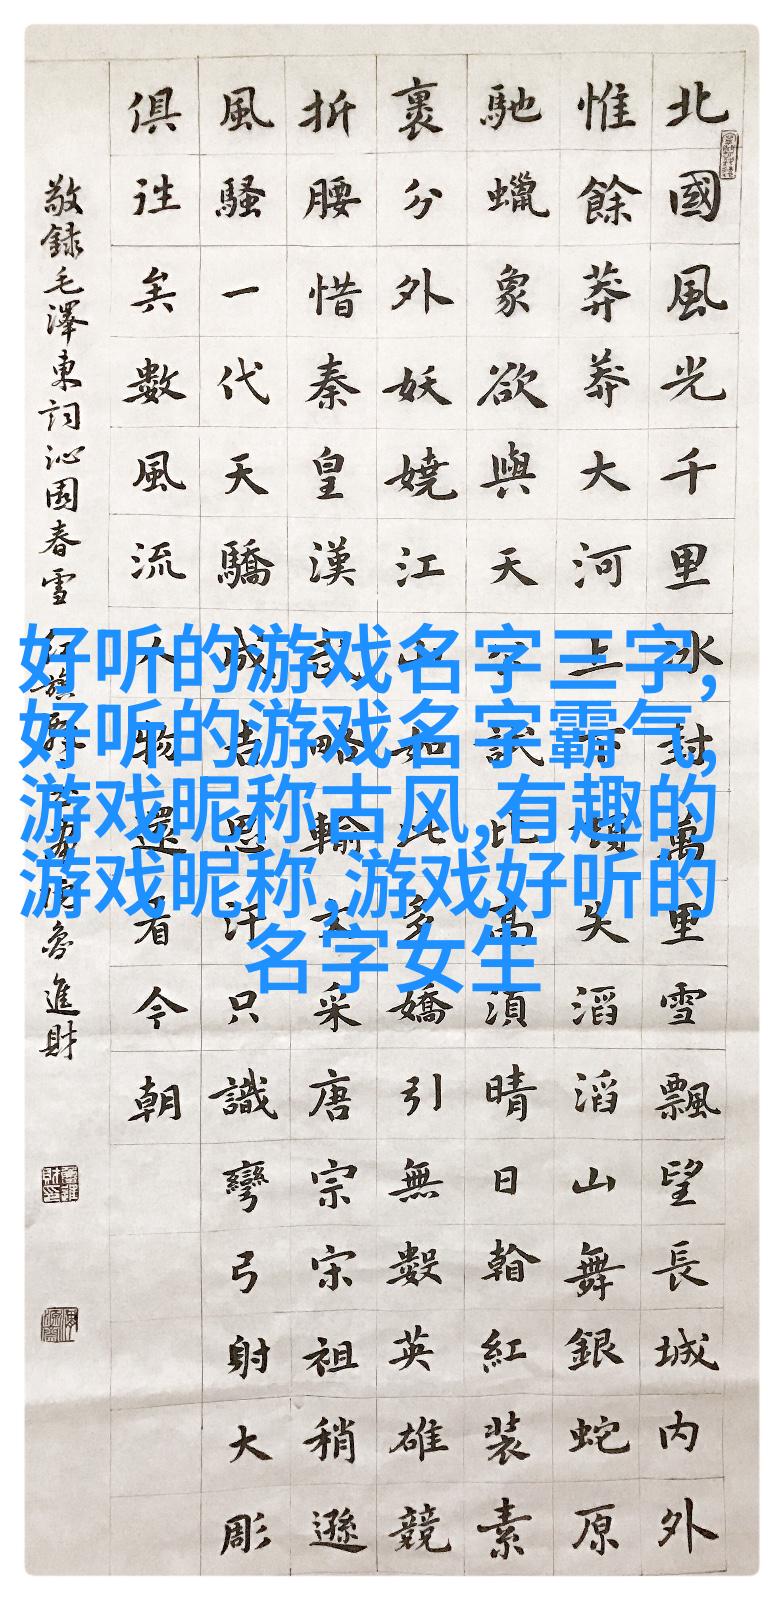 北國風光千里冰封萬里雪飄望長城內外
惟餘莽莽大河上下頓失滔滔山舞銀蛇原
馳蠟象欲與天公試比高須晴日紅裝素
裹分外妖嬈江山如此多嬌引無數英雄競
折腰惜秦皇漢武略輸文采唐宗宋祖稍遜
風騷一代天驕成吉思汗只識彎弓射大彫
俱往矣數風流人物還看今朝
敬錄毛澤東詞沁園春雪 紅旗魯進財
好听的游戏名字三字,
好听的游戏名字霸气,
游戏昵称古风,有趣的
游戏昵称,游戏好听的
名字女生